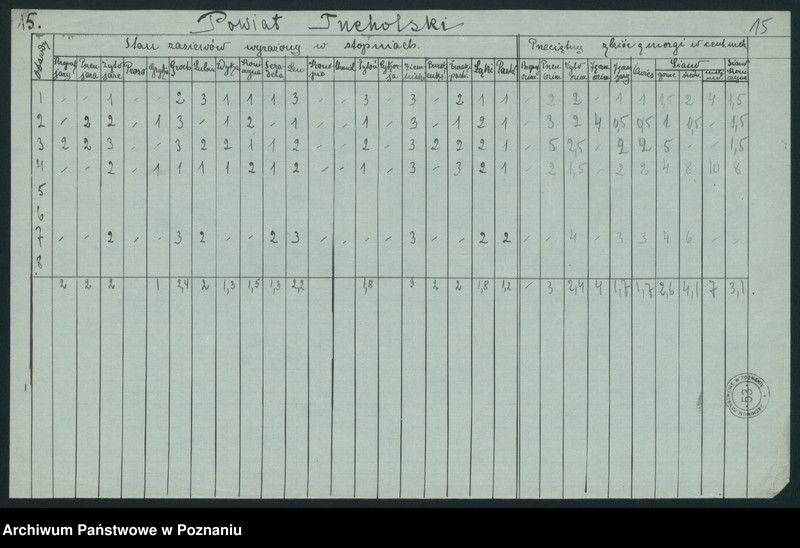 15.
Powiat Tucholski
15
Stan zasiewów wyrażony w stopniach.
Przeciętny zbiór z morgi w centnach
Obwody
Żyto jare
Proso
Gryka
Groch
Wyka
Len
Chmiel
Łąki
Pastw
Owies
Siano
1 - - 1 - - 2 3 1 1 1 3 - - 3 - 3 - 2 1 1 - 2 2 - 1 1 1,5 2 4 1,5
2 - 2 2 - 1 3 - 1 2 - 1 - - 1 - 3 - 1 2 1 - 3 2 4 0,5 0,5 1 0,5 - 1,5
3 2 2 3 - - 3 2 2 1 1 2 - - 2 - 3 2 2 2 1 - 5 2,5 - 2 2 5 1,5
4 - - 2 - 1 1 1 1 2 1 2 - - 1 - 3 - 3 2 1 - 2 1,5 - 2 2 4 8 10 8
5
6
7 - - 2 - - 3 2 - - 2 3 - - - - 3 - - 2 2 - - 4 - 3 3 4 6 - -
8
2 2 2 1 2,4 2 1,3 1,5 1,3 2,2 1,8 3 2 2 1,8 1,2 - 3 2,4 4 1,7 1,7 2,6 4,1 7 3,1
ARCHIWUM PAŃSTWOWE W POZNANIU
53
Archiwum Państwowe w Poznaniu